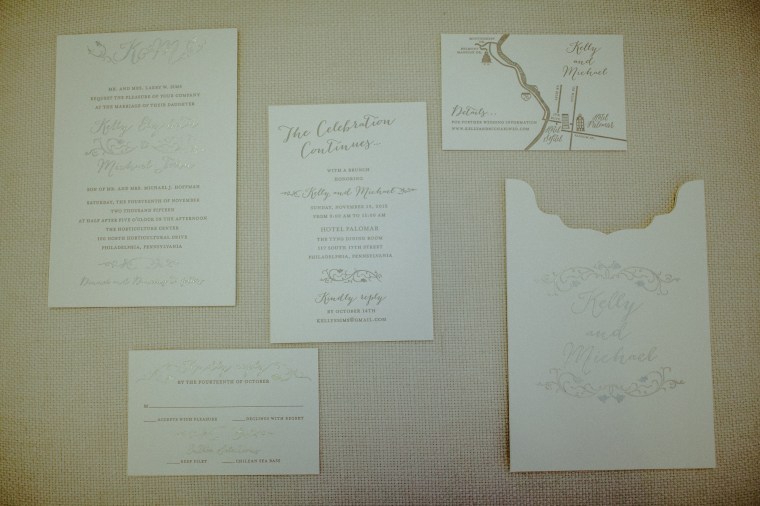 K M
MR. AND MRS. LARRY W. BERG
REQUEST THE PLEASURE OF YOUR COMPANY
AT THE MARRIAGE OF THEIR DAUGHTER
Kelly
Michael
SON OF MR. AND MRS. MICHAEL J. HOFFMAN
SATURDAY, THE FOURTEENTH OF NOVEMBER
TWO THOUSAND FIFTEEN
AT HALF AFTER FIVE O'CLOCK IN THE AFTERNOON
THE HORTICULTURE CENTER
100 NORTH HORTICULTURAL DRIVE
PHILADELPHIA, PENNSYLVANIA
Dinner and Dancing to follow
The Celebration
Continues...
WITH A BRUNCH
HONORING
Kelly and Michael
SUNDAY, NOVEMBER 15, 2015
FROM 9:00 AM TO 12:00 AM
HOTEL PALOMAR
THE TYRO DINING ROOM
117 SOUTH 17TH STREET
PHILADELPHIA, PENNSYLVANIA
Kindly reply
BY OCTOBER 14TH
Kelly
and
Michael
Details...
FOR FURTHER WEDDING INFORMATION
Hotel
Palomar
BY THE FOURTEENTH OF OCTOBER
M
ACCEPTS WITH PLEASURE
DECLINES WITH REGRET
BEEF FILET
CHILEAN SEA BASS
Kelly
and
Michael